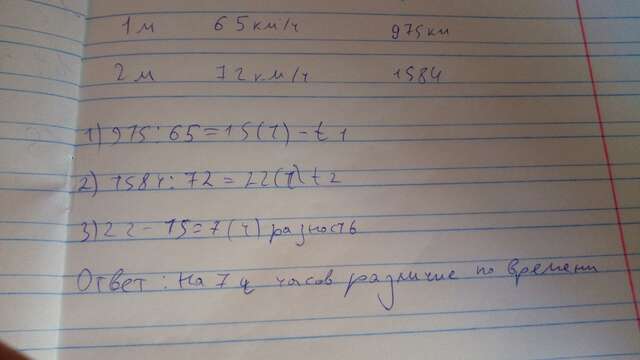 1 м 65 км/ч 975 км
2 м 72 км/ч 1584
1) 975 : 65 = 15 (ч) - t 1
2) 1584 : 72 = 22 (ч) t 2
3) 22 - 15 = 7 (ч) разность
Ответ : на 7 ч часов различие по времени